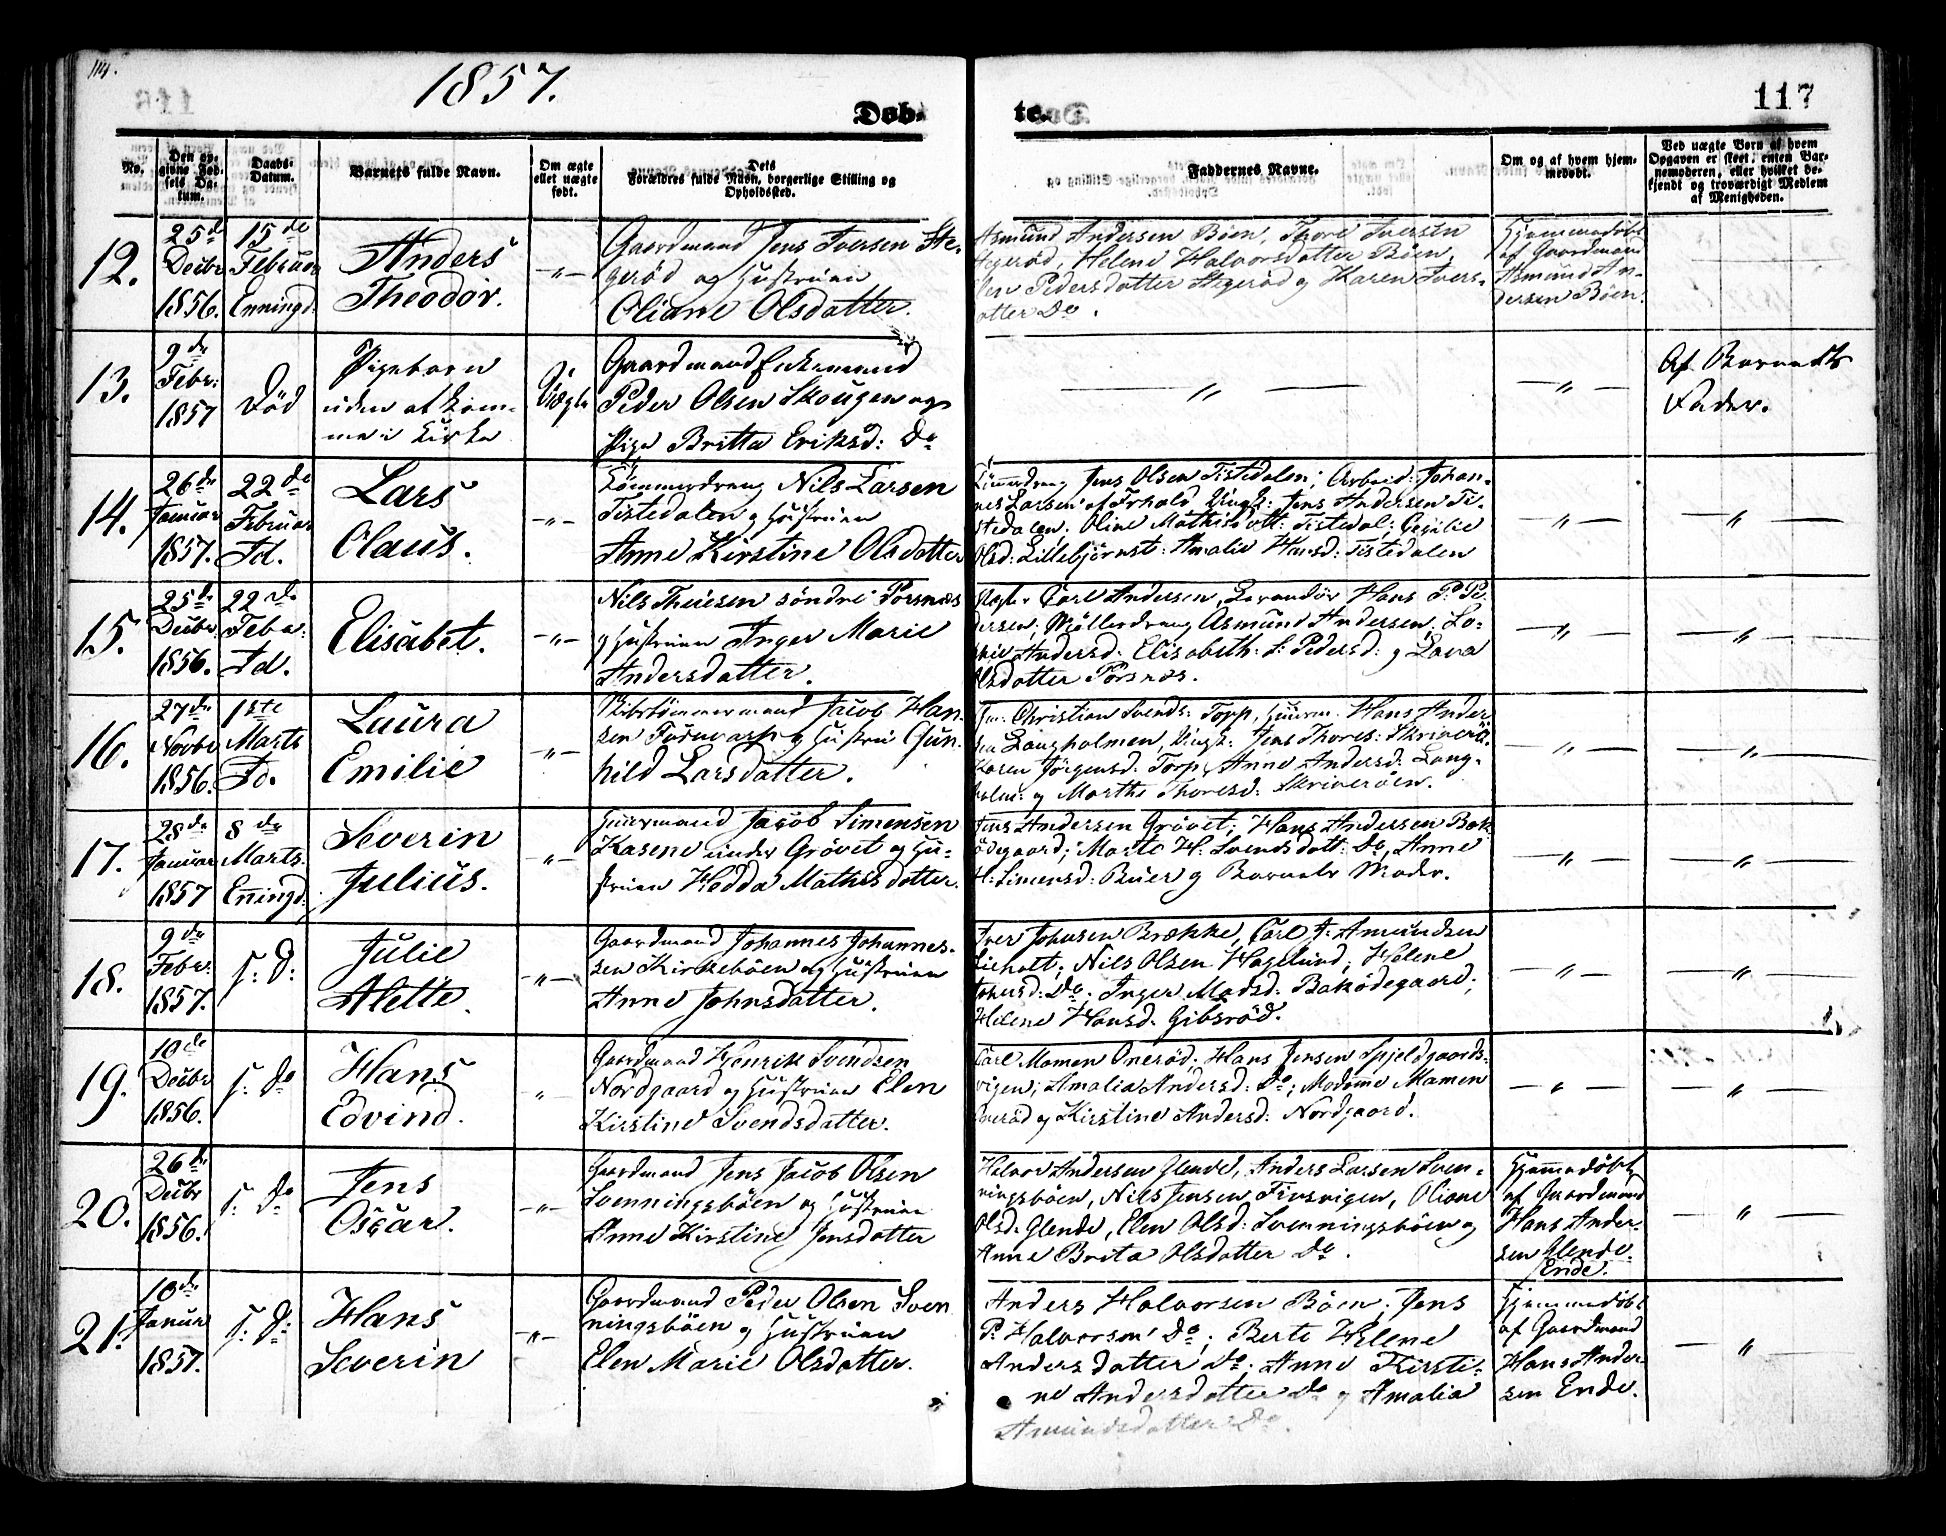 114.
1857.
Døb-
te.
117
No.
Den op-
givne Fød-
sels Da-
tum.
Daabs-
Datum.
Barnets fulde Navn.
Om ægte
ellet uægte
født.
Dets
Forældres fulde Navn, borgerlige Stilling og
Opholdssted.
Faddernes Navne.
Om og af hvem hjem-
medøbt.
Ved uægte Børn af hvem
Opgaven er skeet, enten Bar-
nemoderen, eller hvilket be-
kjendt og troværdigt Medlem
af Menigheden.
12.
25de
Decbr
1856.
15de
Februar
Enningd.
Anders
Theodor.
-"-
Gaardmand Jens Iversen Ste-
gerød og Hustruen
Oliane Olsdatter.
Asmund Andersen Böen, Thore Iversen
Stegerød, Helene Halvorsdatter Böen,
Pedersdatter Stegerød og Karen Ivers-
datter Do.
Hjemmedøbt
af Gaardmand
Asmund An-
dersen Böen.
13.
9de
Febr:
1857
Død
Pigebarn
uden at kom-
me i Kirke
Uægte
Gaardmand Enkemand
Peder Olsen Skougen og
Pige Britta Eriksd: Do
"
"
Af Barnets
Fader.
14.
26de
Januar
1857.
22de
Februar
Id.
Lars
Olaus.
-"-
Tømmerdreng Nils Larsen
Tistedalen og Hustruen
Anne Kirstine Olsdatter
Jens Olsen Tistedalen; Arbeid: Johan-
nes Larsen af Frhald, Ungk: Jens Andersen Ti-
stedalen; Oline Mathisdatt: Tistedal; Cecilie
Olsd: Lillebjørnst: Amalie Hansd: Tistedalen
"
"
15.
25de
Decbr
1856.
22de
Feba:
Id.
Elisabet.
-"-
Nils Theiesen söndre Porsnæs
og Hustruen Inger Marie
Andersdatter.
Carl Andersen, Hans P: Pe-
dersen, Møllerdreng Asmund Andersen; Lo-
vise Andersd: Elisabeth: S: Pedersd: og Lava
Olsdatter Porsnæs.
"
"
16.
27de
Novbr
1856.
1ste
Marts
Id.
Laura
Emilie
-"-
Skibstömmermand Jacob Han-
sen og Hustru Gun-
hild Larsdatter.
Christian Svends: Torp, Hans Ander-
sen Langholmen, Ungk: Jens Thores: Skriverö.
Karen Jørgensd: Torp, Anne Andersd: Lang-
holm: og Marthe Thoresd: Skriveröen.
"
"
17.
28de
Januar
1857
8de
Marts
Enningd.
Severin
Julius.
-"-
Huusmand Jacob Simensen
Kasene under Grövet og Hu-
struen Hedda Mathisdatter.
Jens Andersen Grövet; Hans Andersen Bak-
ödegaard; Marte H: Svendsdatt: Do, Anne
H: Simensd: Buer og Barnets Moder.
"
"
18.
9de
Febr:
1857.
s: D:
Julie
Alette.
-"-
Gaardmand Johannes Johannes-
sen Kirkeböen og Hustruen
Anne Johnsdatter.
Iver Johnsen Brække, Carl J: Amundsen
Lieholt; Nils Olsen Hagelund; Helene
Johnsd: Do; Inger Madsd: Bakødegaard;
Helene Hansd: Gibsröd.
"
"
19.
10de
Decbr
1856.
s: Do
Hans
Edvind.
"
Gaardmand Henrik Svendsen
Nordgaard og Hustruen Elen
Kirstine Svendsdatter.
Carl Mamen Oneröd; Hans Jensen Spjeldgaards-
vigen; Amalia Andersd: Do; Madamme Mamen
Oneröd og Kirstine Andersd: Nordgaard.
"
"
20.
26de
Decbr
1856.
s: Do
Jens
Oscar.
-"-
Gaardmand Jens Jacob Olsen
Svenningsböen og Hustruen
Anne Kirstine Jensdatter
Halvor Andersen Glende, Anders Larsen Sven-
ningsböen, Nils Jensen, Oliane
Olsd: Glende, Elen Olsd: Svenningsböen og
Anne Brita Olsdatter Do.
Hjemmedøbt
af Gaardmand
Hans Ander-
sen Glende.
Ende.
"
21.
10de
Januar
1857.
s: D:
Hans
Severin
-"-
Gaardmand Peder Olsen Sven
ningsböen og Hustruen
Elen Marie Olsdatter.
Anders Halvorsen Böen; Jens
P: Halvorsen Do; Berte Helene
Andersdatter Do; Anne Kirsti-
ne Andersdatter Do og Amalia
Amundsdatter Do.
Hjemmedøbt
af Gaardmand
Hans Ander-
sen Ende.
"